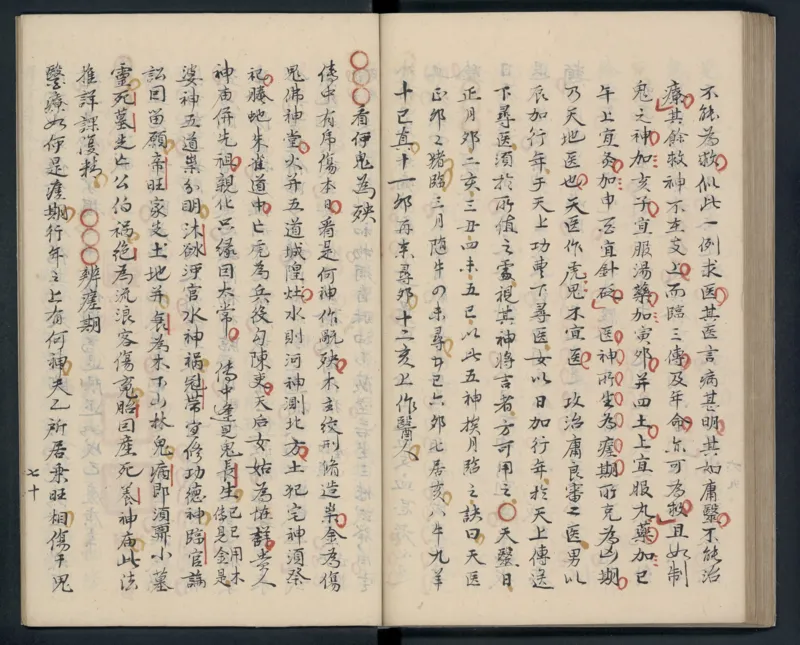 不能為救似此一例求医其医言病甚明其如庸醫不能治
療其餘救神不在支上而臨三傳及年命亦可為救且如制
鬼之神加亥子宜服湯藥加寅卯并四土上宜服丸藥加巳
午上宜灸加申酉宜針砭医神所生為瘥期所克為凶期
乃天地医也天医作虎鬼不宜医攻治庸良審之医男以
辰加行年于天上功曹下尋医女以日加行年於天上傳送
下尋医須於所值之處視其神將吉者方可用之天醫日
正月卯二亥三丑四未五巳以此五神挨月臨之訣曰天医
正卯二猪臨三月隨牛四未尋五巳六卯七居亥八牛九羊
十巳真十一卯再來尋卯十二亥上作醫人
看伊鬼為殃
傳中有鬼傷本日看是何神作祸殃木主絞刑脩造祟金為傷
鬼佛神堂火并五道城隍灶水則河神測北方土犯宅神須祭
祀螣蛇朱雀道中亡虎為兵伐勾陳吏天后女姑為恠貴人
神庙併先祖親化只緣因太常傳中逢見鬼長生巳巳用木傳是金是
婆神五道祟分明沐浴河官水神禍冠帶齋修功德神臨官論
訟因留願帝旺家先土地并衰為木下山林鬼病即須尋小墓
靈死墓先亡公伯祸絕為流浪客傷亮胎因產死養神庙此法
推詳課復精
辨瘥期
醫療如何是瘥期行年之上有何神天乙所居乘旺相傷于鬼
七十